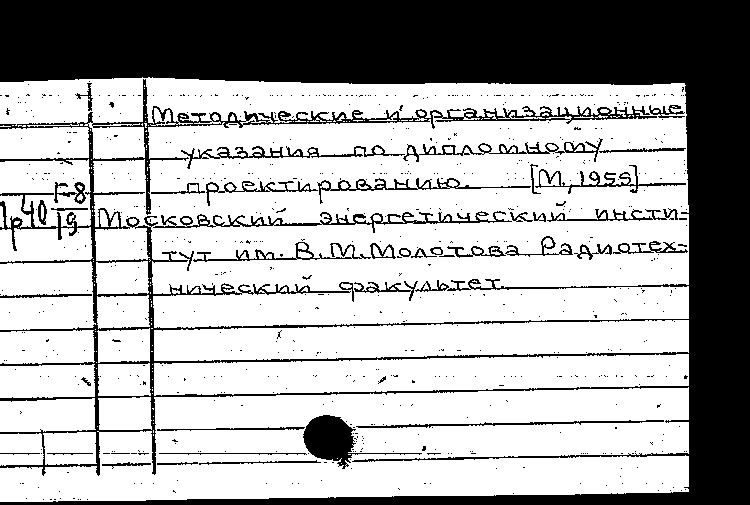 Методические и организационные
указания по дипломному
проектированию. [М., 1955]
Пр40 Г-8/19 Московский энергетический инсти-
тут им. В. М. Молотова Радиотех-
нический факультет